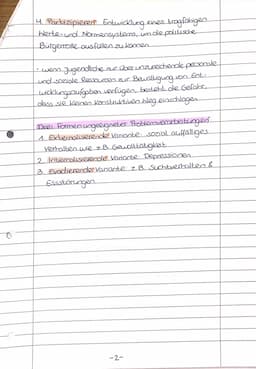 4. Partizipieren: Entwicklung eines tragfähigen
Werte- und Normensystems, um die politische
Bürgerrolle ausfüllen zu können
- wenn Jugendliche nur über unzureichende personale
und soziale Ressourcen zur Bewältigung von Ent-
wicklungsaufgaben verfügen, besteht die Gefahr,
dass sie keinen konstruktiven Weg einschlagen
Drei Formen ungeeigneter Problemverarbeitungen
1. Externalisierende Variante: sozial auffälliges
Verhalten wie z.B. Gewalttätigkeit
2. Internalisierende Variante: Depressionen
3. Evadierende Variante: z.B. Suchtverhalten &
Essstörungen
-2-